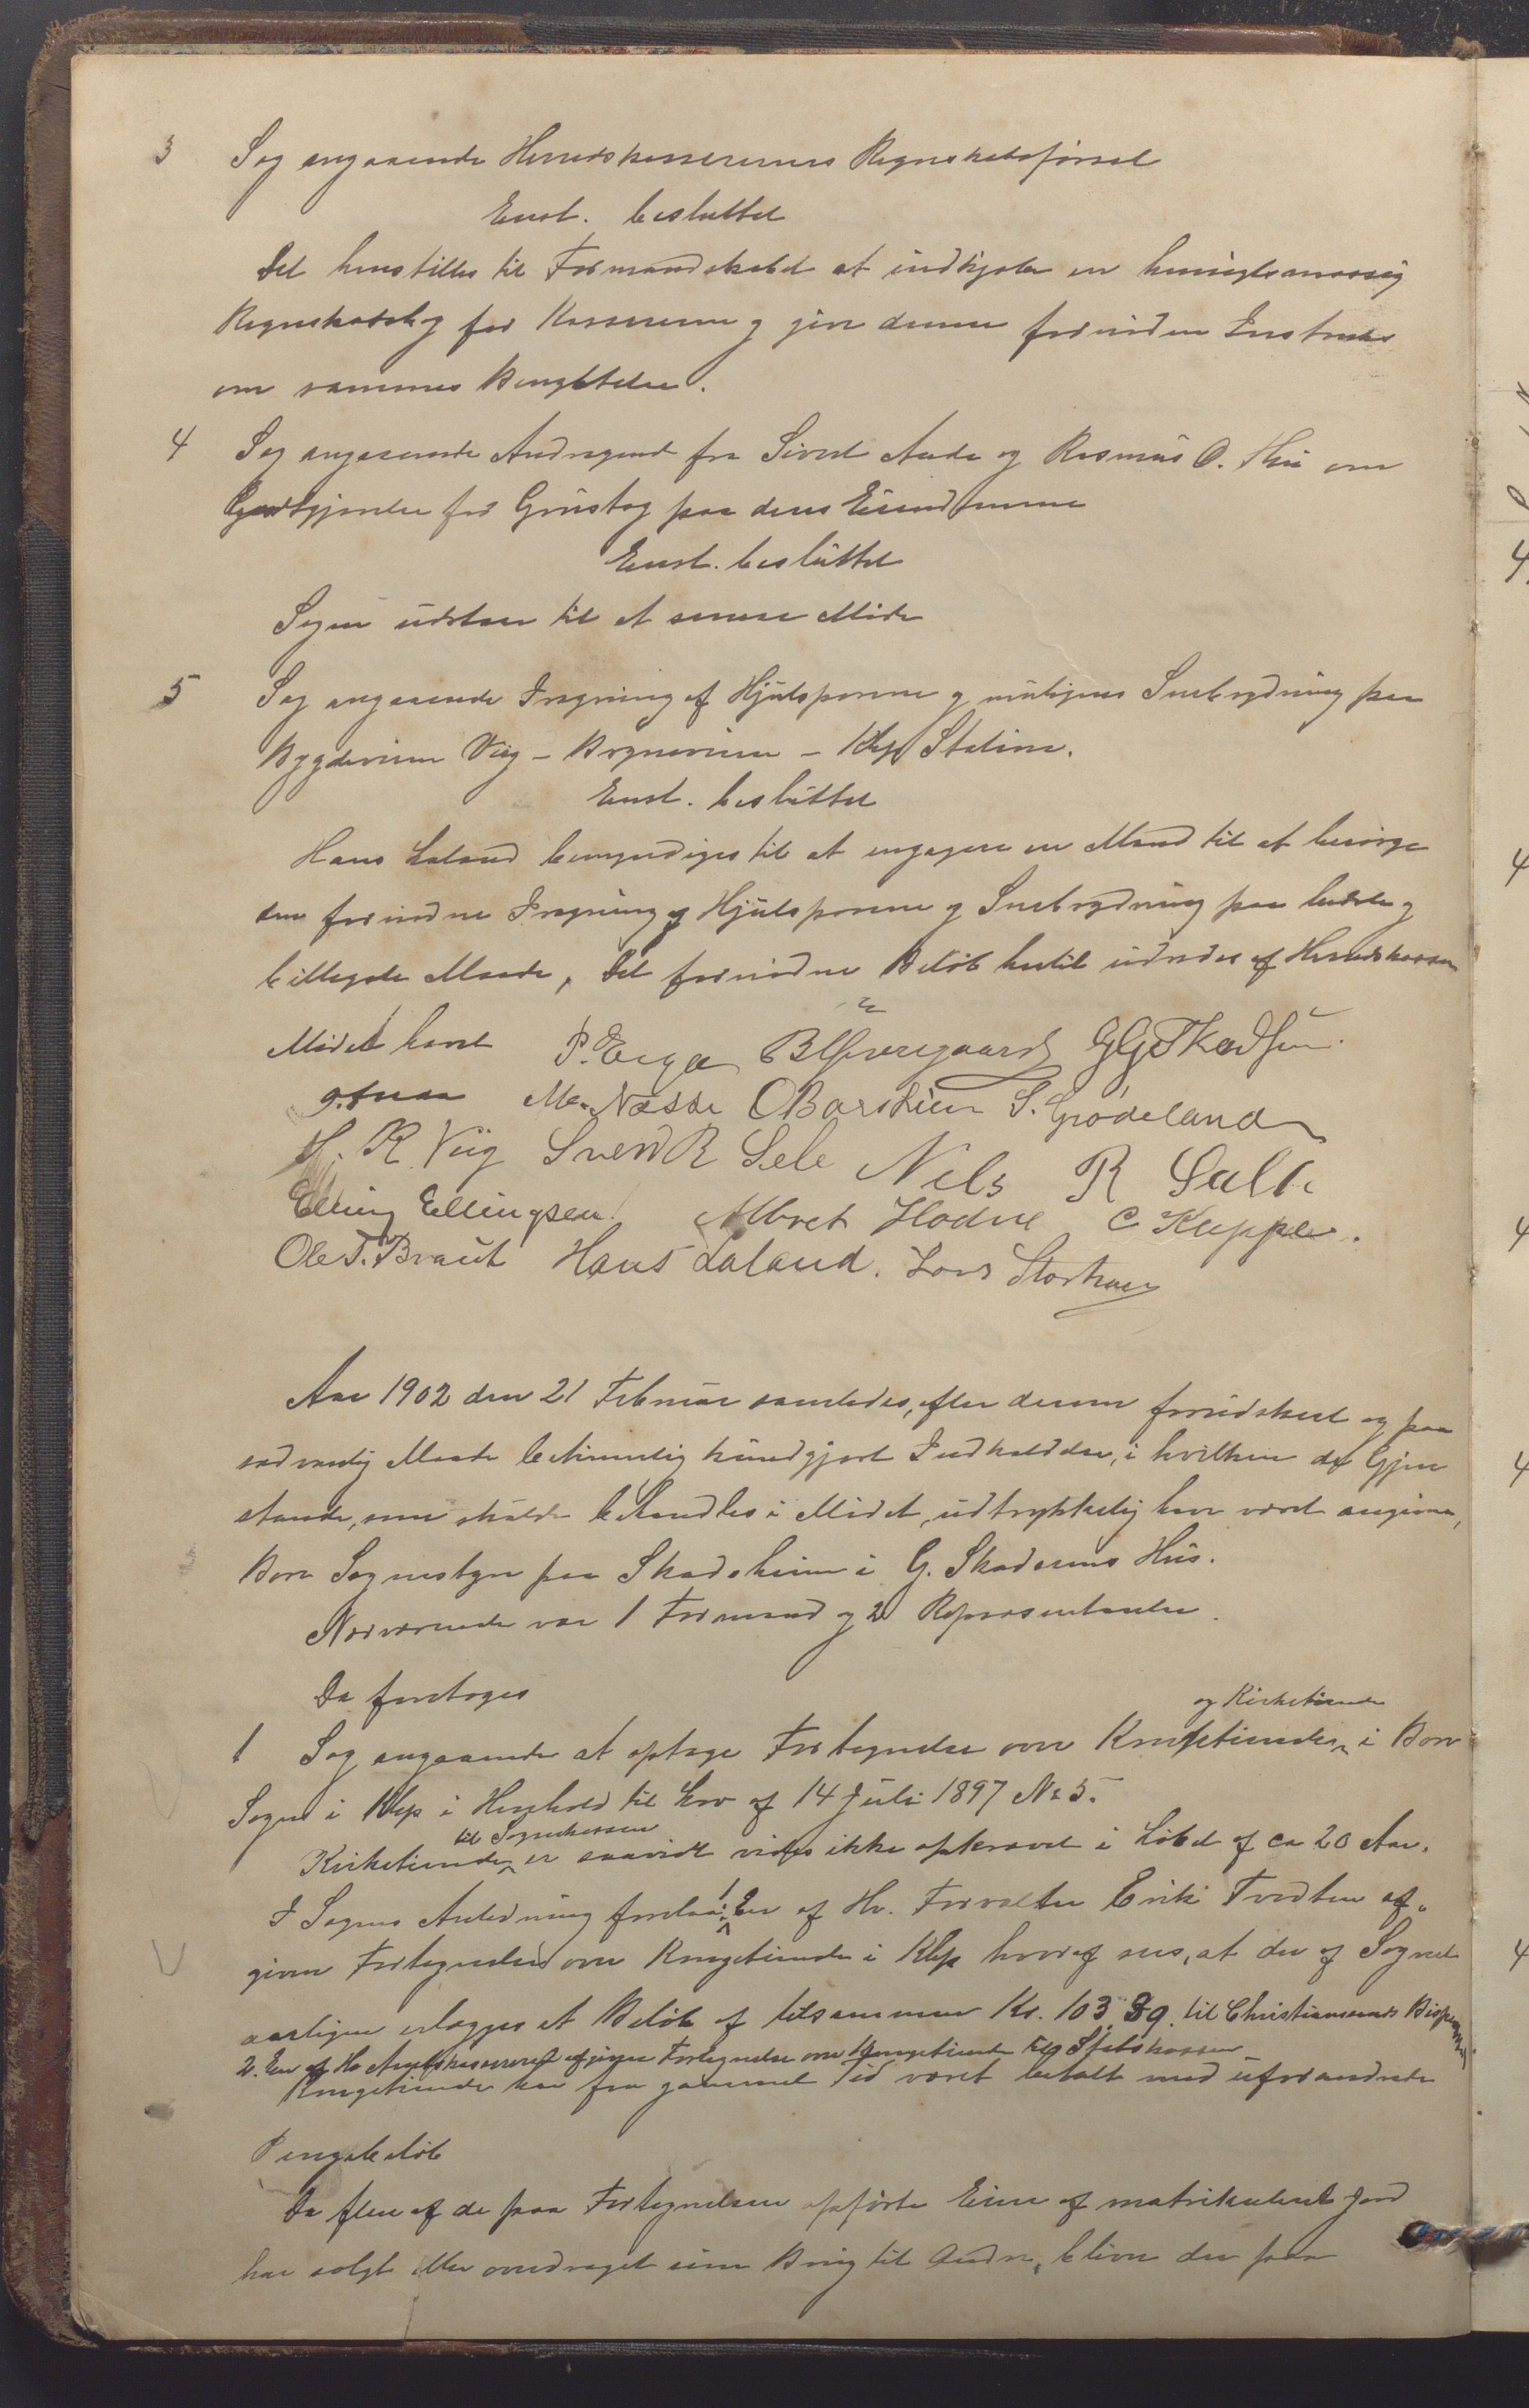 3 Sag angaaende Herredskassererens Regnskabsførsel
Enst. besluttet
Det henstilles til Formandskabet at indkjøbe en hensigtsmæssig
Regnskabsbog for Kassereren og give denne fornøden Instruks
om sammes Benyttelse.
4 Sag angaaende Andragende fra Sivert Aude og Rasmus O. Hui om
Godtgjørelse for Grustag paa deres Eiendomme
Enst. besluttet
Sagen udstaar til et senere Møde
5 Sag angaaende Iragning af Hjulsporene og muligens Snebrydning paa
Bygdeveien Viig - Bryneveien - Klep Station.
Enst. besluttet
Hans Laland bemyndiges til at engagere en Mand til at besørge
den fornødne Iragning af Hjulsporene og Snebrydning paa bedste og
billigste Maade, Det fornødne Beløb hertil udredes af Herredskassen
Mødet hævet P. Erga B Hværgaard G G Skadsem.
M. Næsse O Barstien S. Grødeland
H. R. Viig Svend R Sele Nils R Salte
Elling Ellingsen Albret Hodne C Kuppe.
Ole T. Braut Hans Laland. Lars Storhaug
Aar 1902 den 21 Februar samledes, efter derom forudskeet og paa
sædvanlig Maade betimelig kundgjort Indkaldelse, i hvilken de Gjen
stande, som skulde behandles i Mødet, udtrykkelig have været angivne,
Bore Sognestyre paa Skadsheim i G. Skadsems Hus.
Nærværende var 1 Formand og 2 Repræsentanter.
Da foretoges
og Kirketiende
1 Sag angaaende at optage Fortegnelse over Kongetienden i Bore
Sogn i Klep i Henhold til Lov af 14 Juli 1897 No 5.
til Sognekassen
Kirketiende er saavidt vides ikke opkrævet i Løbet af ca 20 Aar.
I Sagens Anledning forelaa: 1. En af Hr. Forvalter Erik Tvedten af-
given Fortegnelse over Kongetiende i Klep hvoraf sees, at der af Sognet
aarligen erlægges et Beløb af tilsammen Kr. 103.89. til Christianssands Bispestol
2. En af Hr Amtskassereren afgiven Fortegnelse over Kongetiende til Statskassen
Kongetiende har fra gammel Tid været betalt med uforandrede
Pengebeløb
Da flere af de paa Fortegnelsen opførte Eiere af matrikuleret Jord
har solgt eller overdraget sine Brug til Andre, bliver der paa